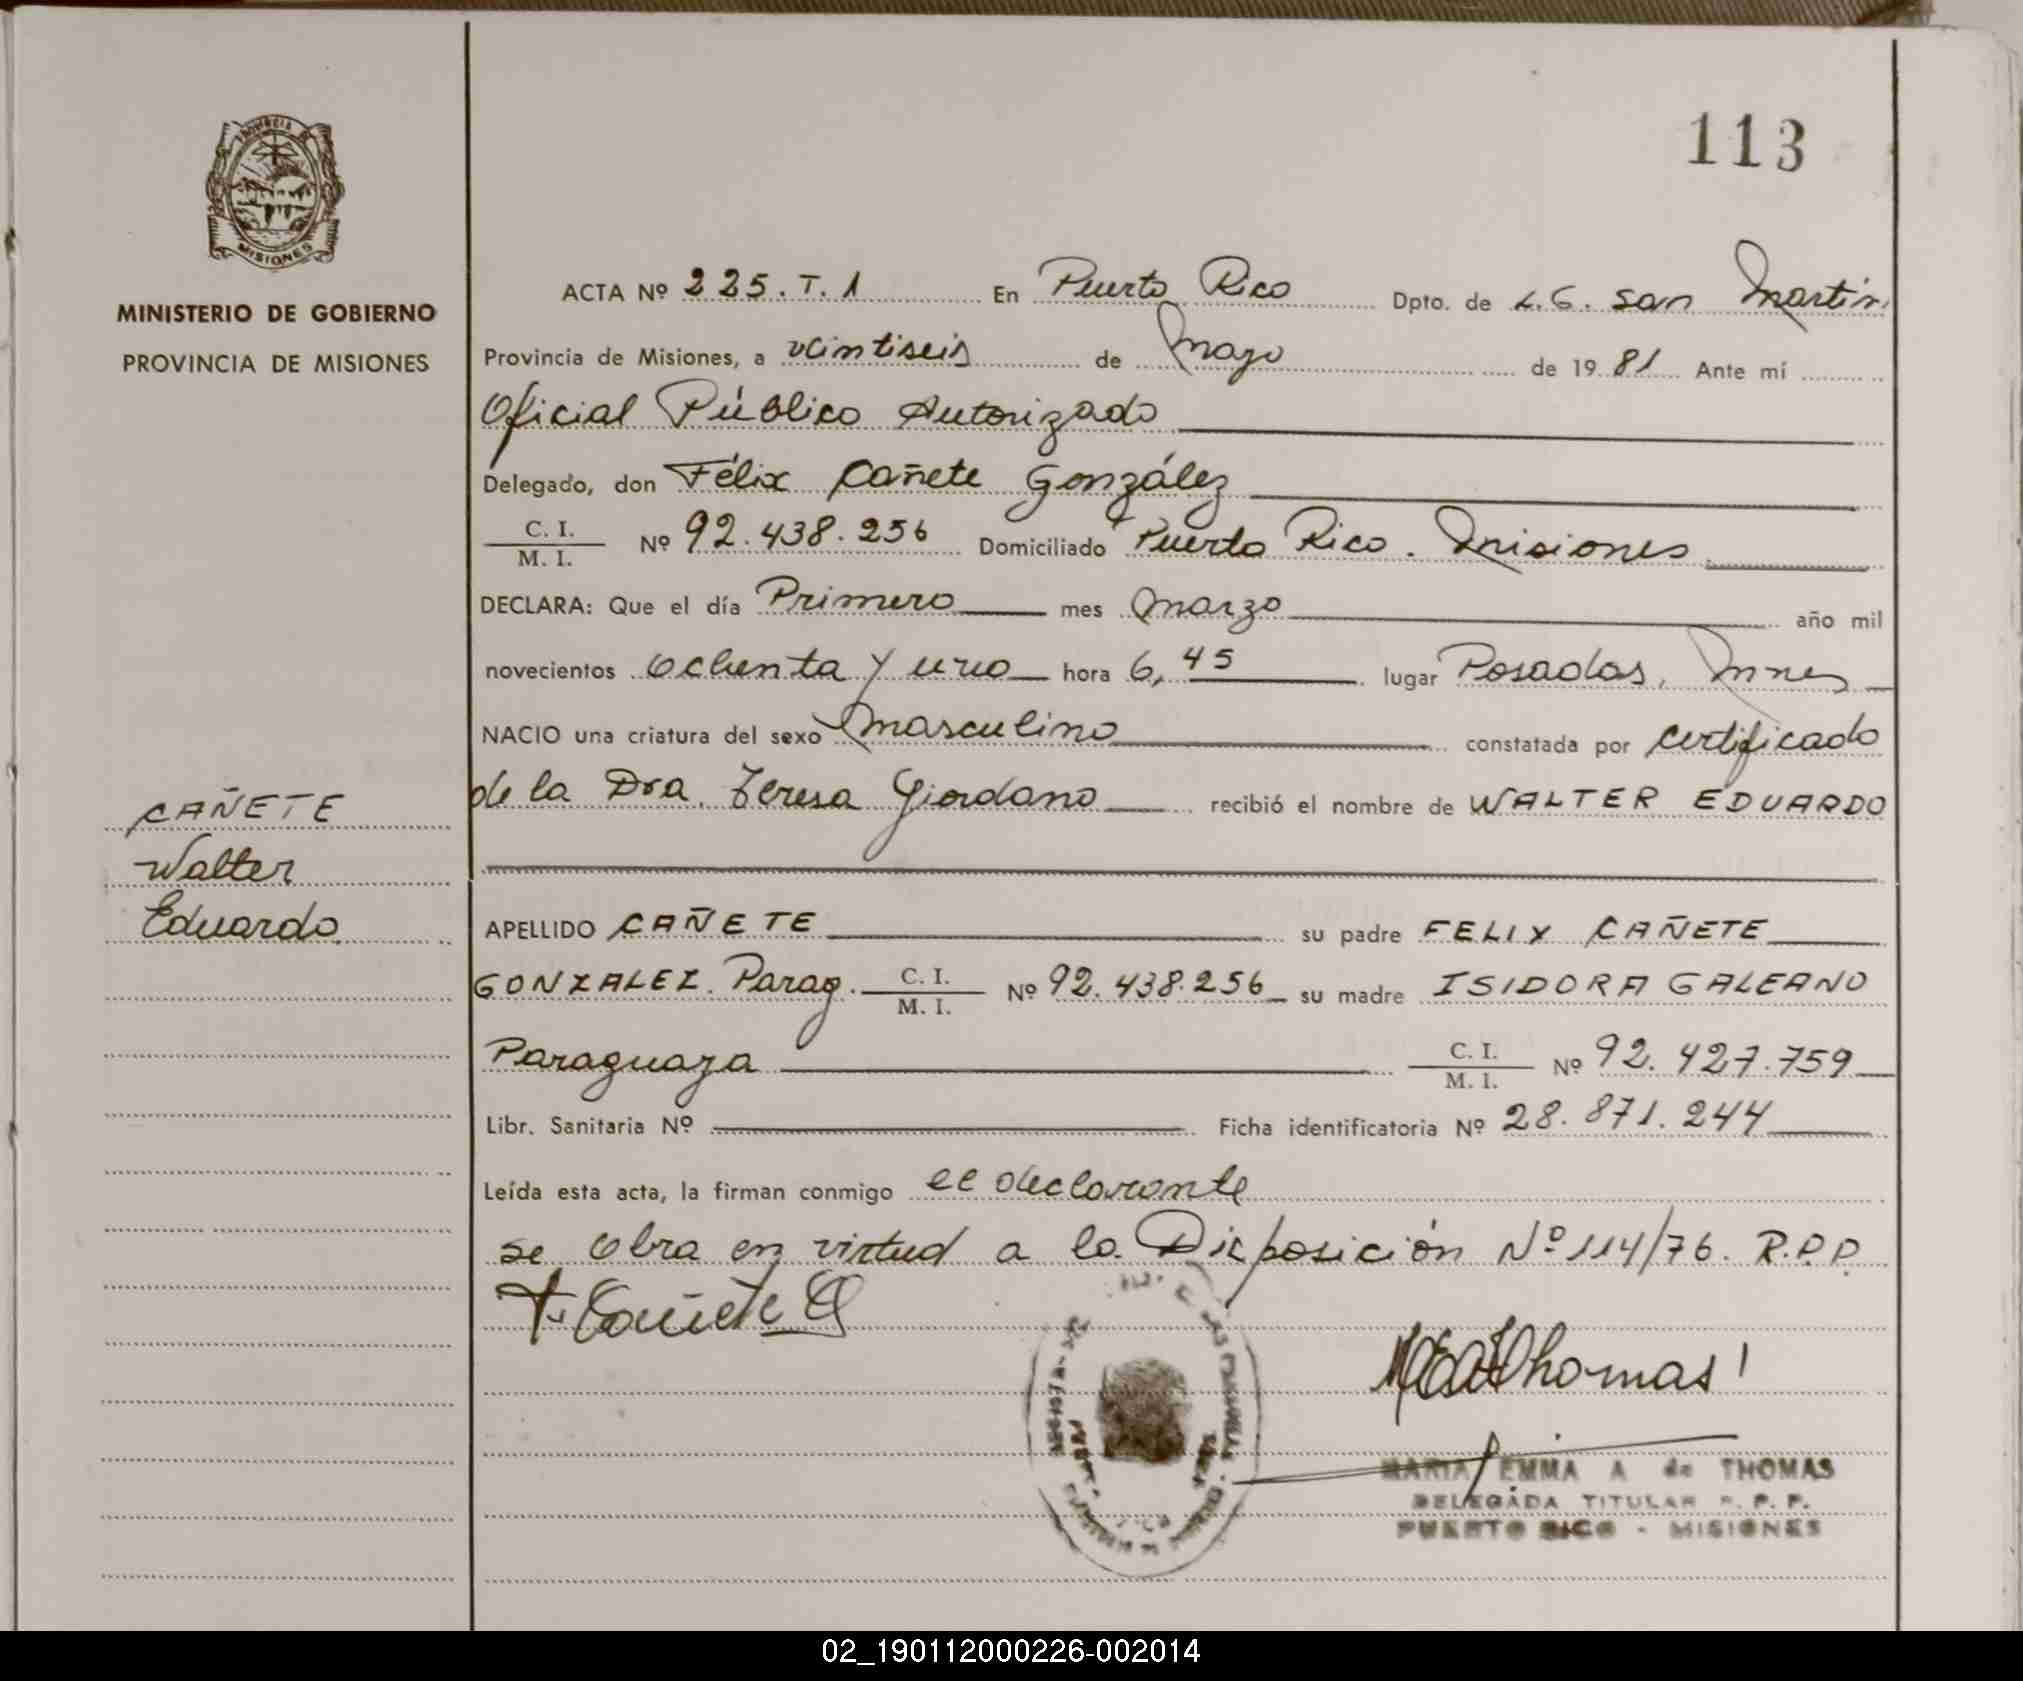 113
PROVINCIA DE
MISIONES
MINISTERIO DE GOBIERNO
PROVINCIA DE MISIONES
ACTA Nº 225. T. 1 En Puerto Rico Dpto. de L.G. San Martin,
Provincia de Misiones, a veintiseis de mayo de 1981 Ante mí
Oficial Público Autorizado
Delegado, don Félix Cañete González
C. I.
M. I. Nº 92.438.256 Domiciliado Puerto Rico. Misiones
DECLARA: Que el día Primero mes marzo año mil
novecientos ochenta y uno hora 6,45 lugar Posadas, Mnes
NACIO una criatura del sexo masculino constatada por certificado
de la Dra. Teresa Giordano recibió el nombre de WALTER EDUARDO
CAÑETE
Walter
Eduardo
APELLIDO CAÑETE su padre FELIX CAÑETE
GONZALEZ. Parag. C. I.
M. I. Nº 92.438.256 su madre ISIDORA GALEANO
Paraguaya C. I.
M. I. Nº 92.427.759
Libr. Sanitaria Nº Ficha identificatoria Nº 28.871.244
Leída esta acta, la firman conmigo el declarante
se obra en virtud a la Disposición Nº 114/76. R.P.P.
F. Cañete G
Thomas
MARIA EMMA A de THOMAS
DELEGADA TITULAR R. P. P.
PUERTO RICO - MISIONES
02_190112000226-002014